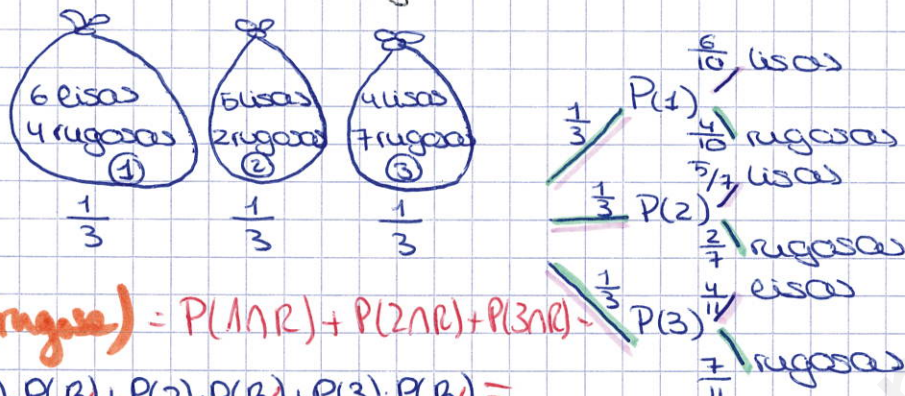 6 lisas
4 rugosas
①
1/3
5 lisas
2 rugosas
②
1/3
4 lisas
7 rugosas
③
1/3
1/3 P(1) 6/10 lisas
4/10 rugosas
1/3 P(2) 5/7 lisas
2/7 rugosas
1/3 P(3) 4/11 lisas
7/11 rugosas
= P(1∩R) + P(2∩R) + P(3∩R) -
P(R) + P(2) · P(R) + P(3) · P(R) =